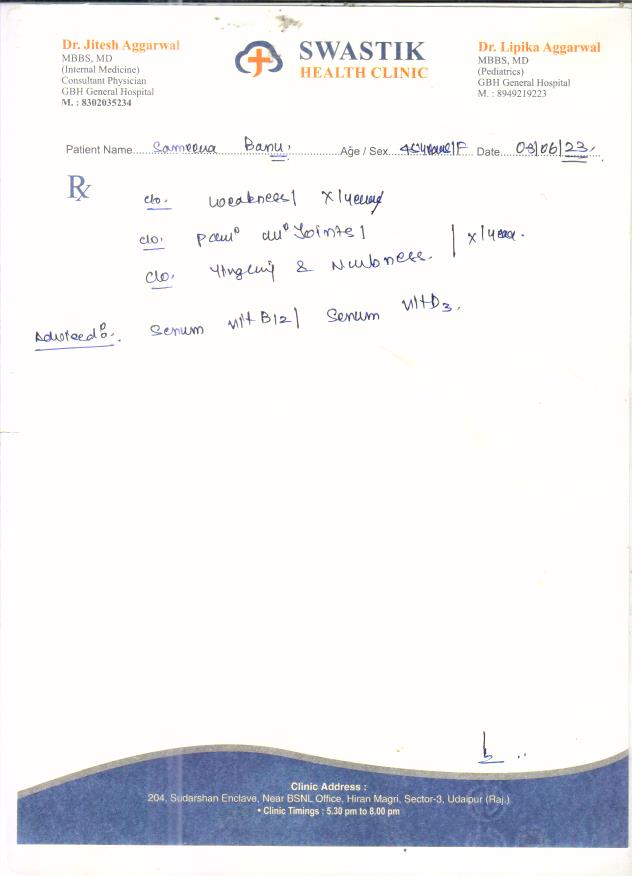 Dr. Jitesh Aggarwal
MBBS, MD
(Internal Medicine)
Consultant Physician
GBH General Hospital
M. : 8302035234
SWASTIK
HEALTH CLINIC
Dr. Lipika Aggarwal
MBBS, MD
(Pediatrics)
GBH General Hospital
M. : 8949219223
Patient Name Sameena Banu Age / Sex 45 years/F Date 09/06/23
Rx
c/o. weakness x 1 year
c/o. Pain Joints
c/o. Tingling & Numbness. x 1 year.
Advised Serum vit B12 / Serum vit D3.
Clinic Address :
204, Sudarshan Enclave, Near BSNL Office, Hiran Magri, Sector-3, Udaipur (Raj.)
• Clinic Timings : 5.30 pm to 8.00 pm